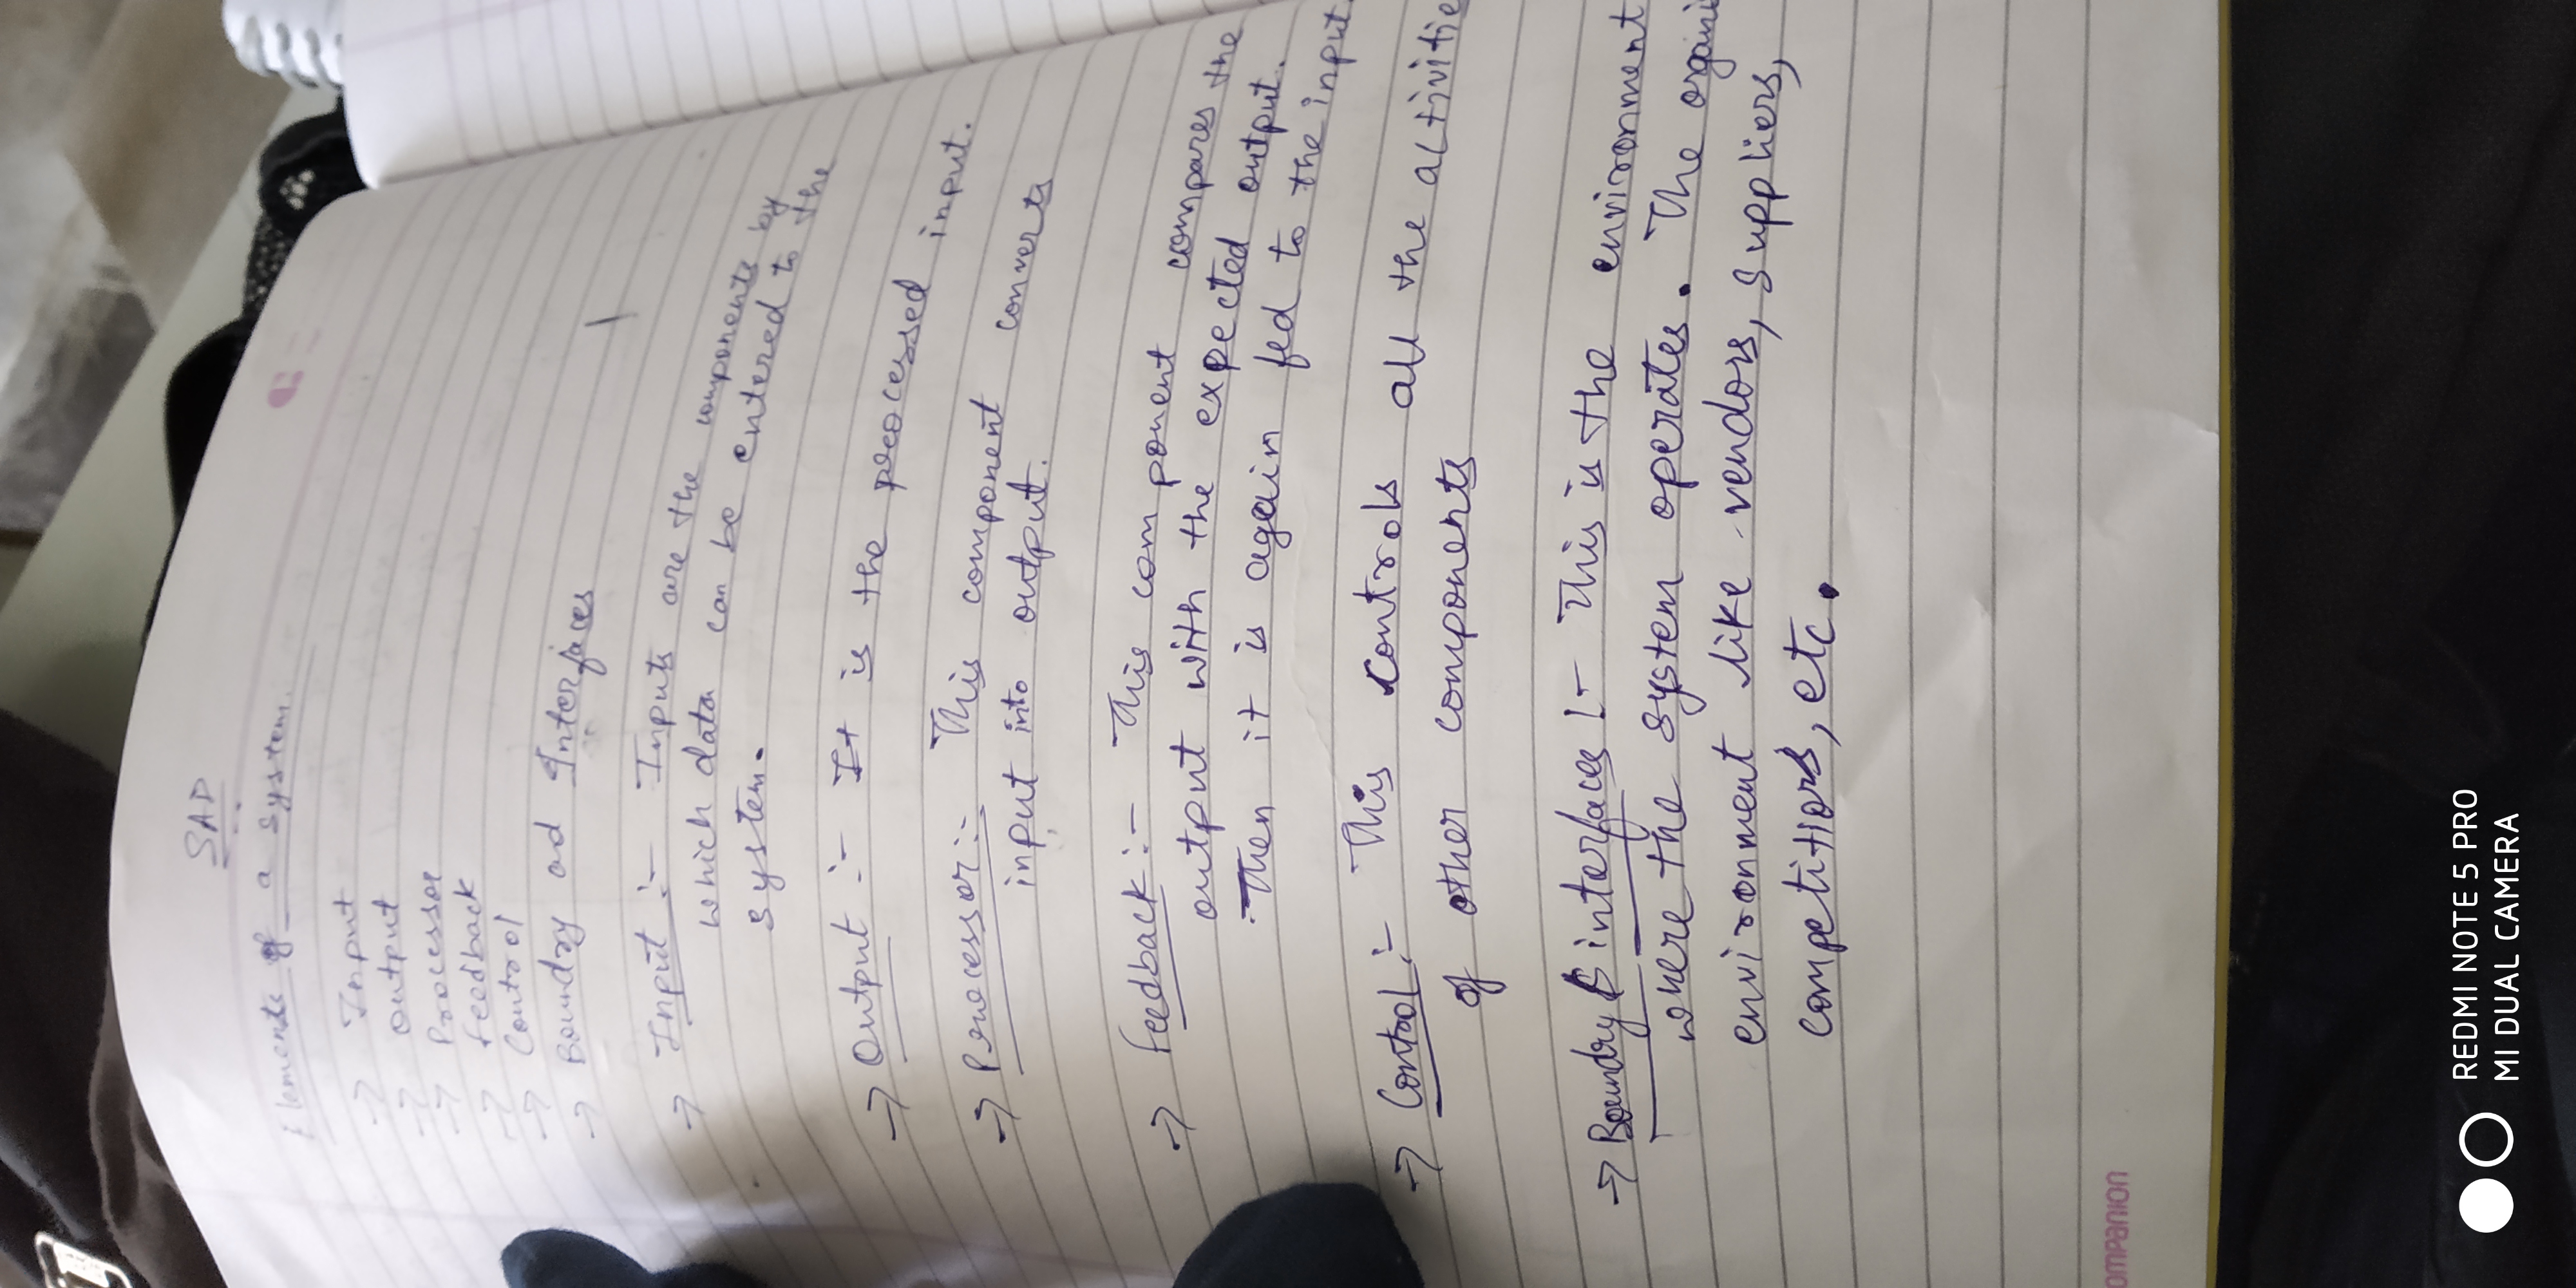 SAD
Elements of a system.
→ Input
→ output
→ Processor
→ feedback
→ Control
→ Boundry ad Interfaces
→ Input :- Inputs are the components by
which data can be entered to the
system.
→ Output :- It is the processed input.
→ Processor:- This component converts
input into output.
→ feedback:- This component compares the
output with the expected output.
Then it is again fed to the input.
→ Control :- This controls all the activitie
of other components
→ Boundry & interfaces :- This is the environment
where the system operates. The organi
environment like vendors, suppliers,
competitiors, etc.
ompanion
REDMI NOTE 5 PRO
MI DUAL CAMERA